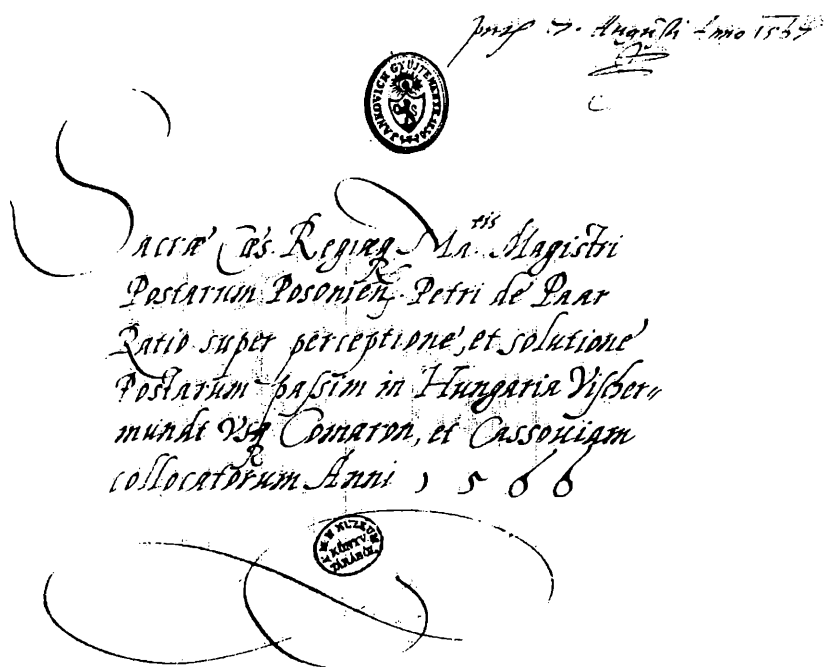 7. Augusti Anno 1567
JANKOVICH GYÜJTEMENYE
Sacræ Cæs. Regiæq Ma.tis Magistri
Postarum Posonien. Petri de Paar
Ratio super perceptione, et solutione
Postarum passim in Hungaria Vischer=
mundt Vsq Comaron, et Cassouiam
collocatorum Anni 1566
N MUZEUM
KÖNYV
TÁRÁBÓL